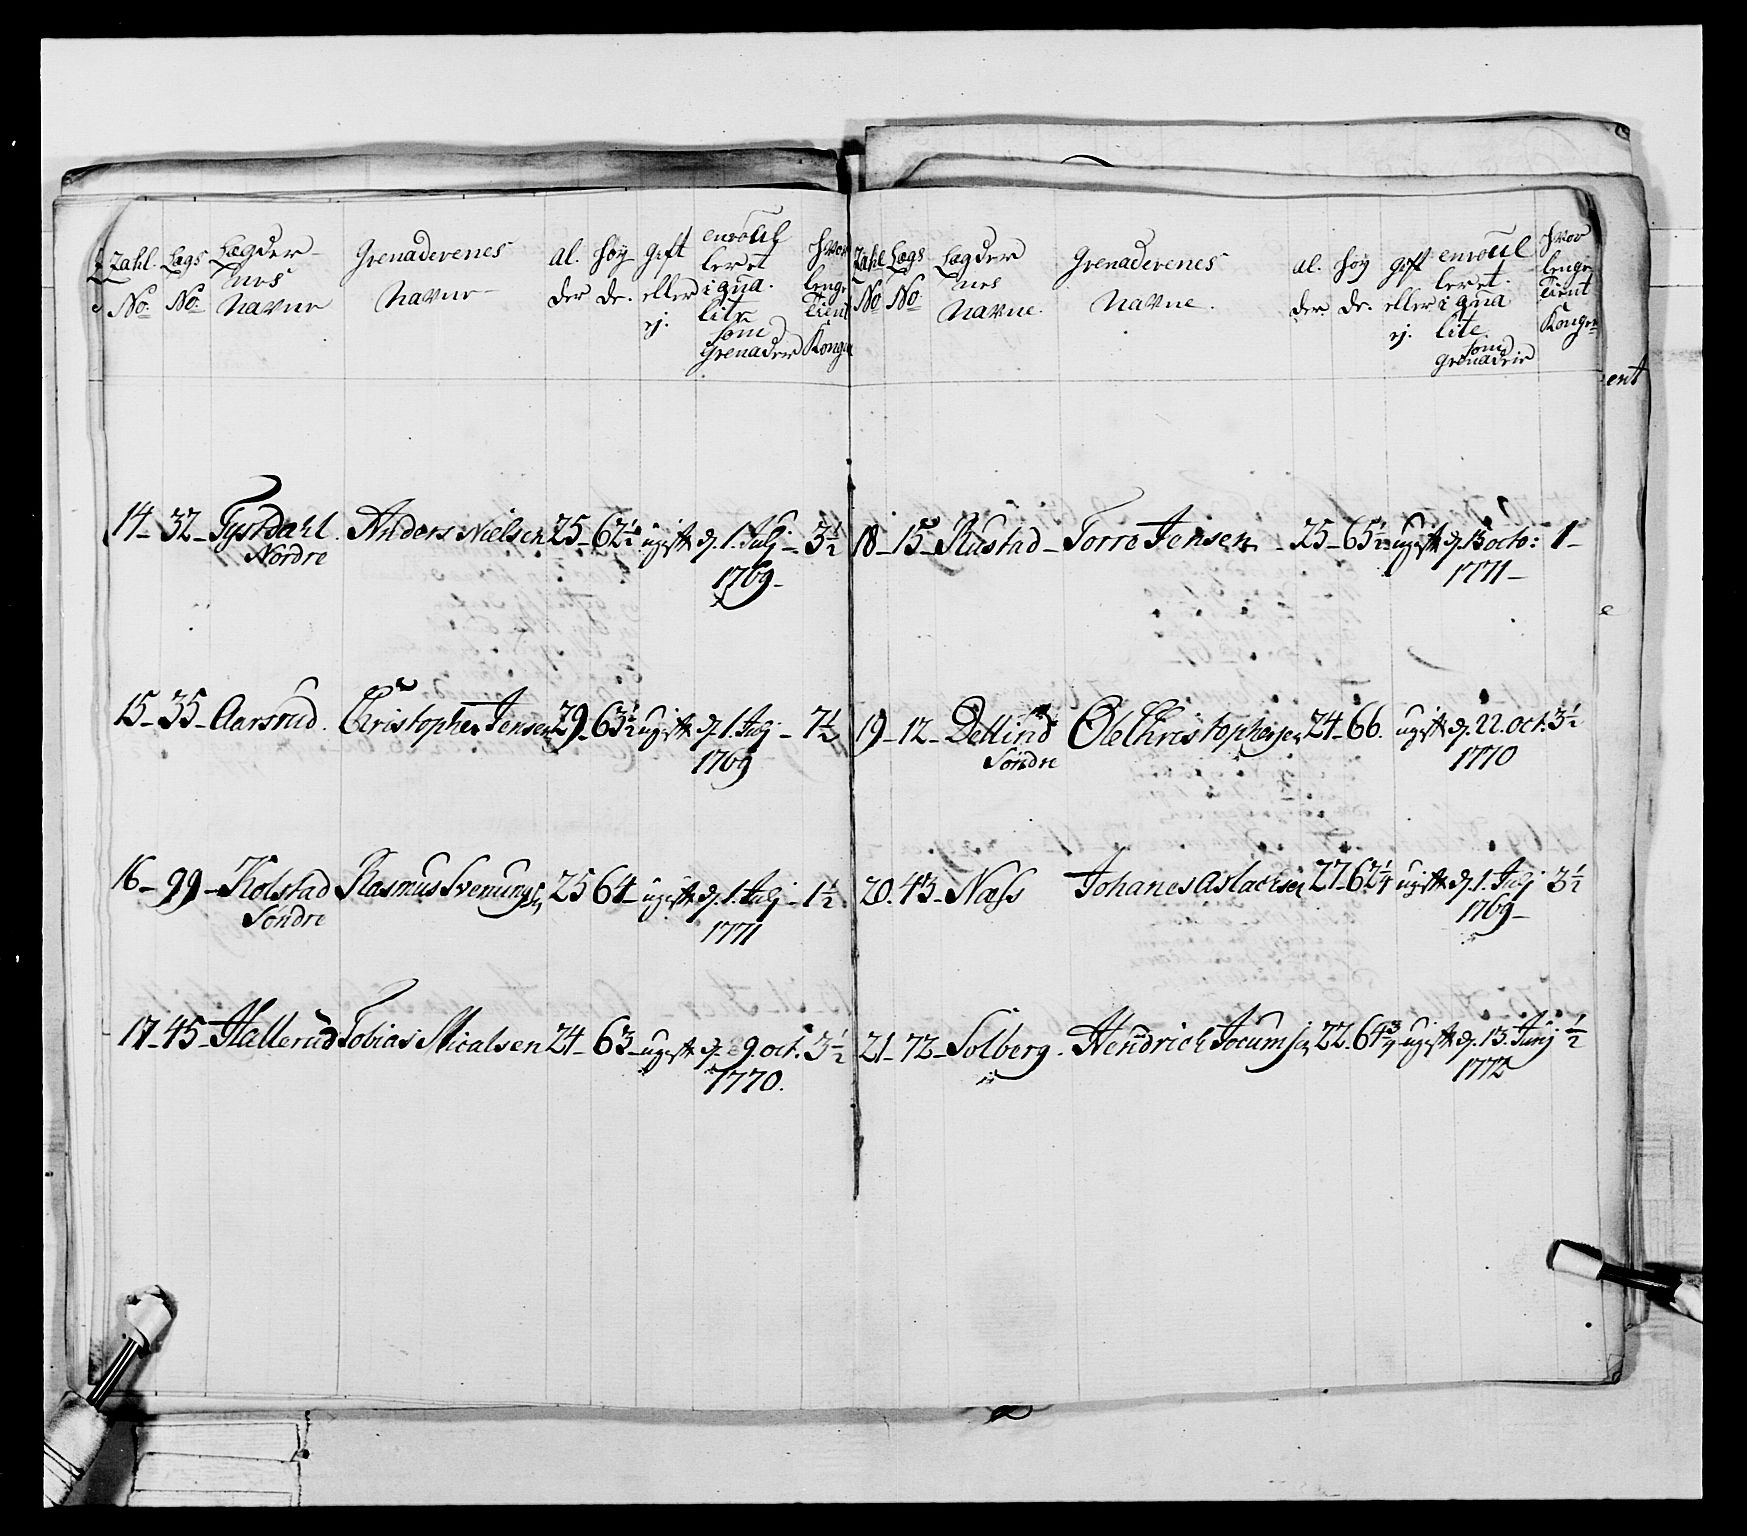 Zahl No: Lægs No: Lægder nes Navne Grenaderenes Navne Al. der Høy de. gift eller ej. enroul leret i qua. lite som Grenader Hvor lenge tient Kongen
14 - 32 - Tystdahl Nordre Anders Nielsen 25 - 62 1/2 ugift d. 1. Julj 1769 - 3 1/2
15 - 35 - Aarsrud. Christopher Jensen 29 - 63 1/2 ugift d. 1. Julj 1769 - 7 1/2
16 - 99 - Kolstad Søndre Rasmus Svenungsen 25 64 - ugift d. 1. Julj 1771 - 1 1/2
17 - 45 - Hallerud Tobias Micalsen 24 - 63 - ugift d. 9 oct. 1770. 3 1/2
Zahl No Lægs No. Lægder nes Navne. Grenaderenes Navne. Al. der. Høy de. gift eller ej. enroul leret. i qua lite som grenadeir Hvor lenge tient Kongen
18 - 15 - Rustad - Torre Jensen - 25 - 65 1/2 ugift d. 13 octo: 1771 - 1 -
19 - 12 - Dellirid Søndre Ole Christophersen 24 - 66. ugift d. 22. oct. 1770 3 1/2
20. 43 - Næss Johanes Aslachsen 27 - 62 1/4 ugift d. 1. Julj 1769 - 3 1/2
21 - 72 - Solberg. Hendrich Jocumsen 22. 64 3/4 ugift d. 13. Junj 1772 1/2
ent